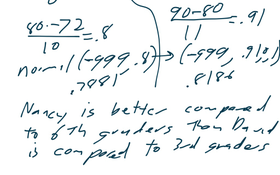 80-72/10 = .8
90-80/11 = .91
normal (-999, .8) → (-999, .91, 0, 1)
.7881
.8186
Nancy is better compared
to 6th graders than David
is compared to 3rd graders